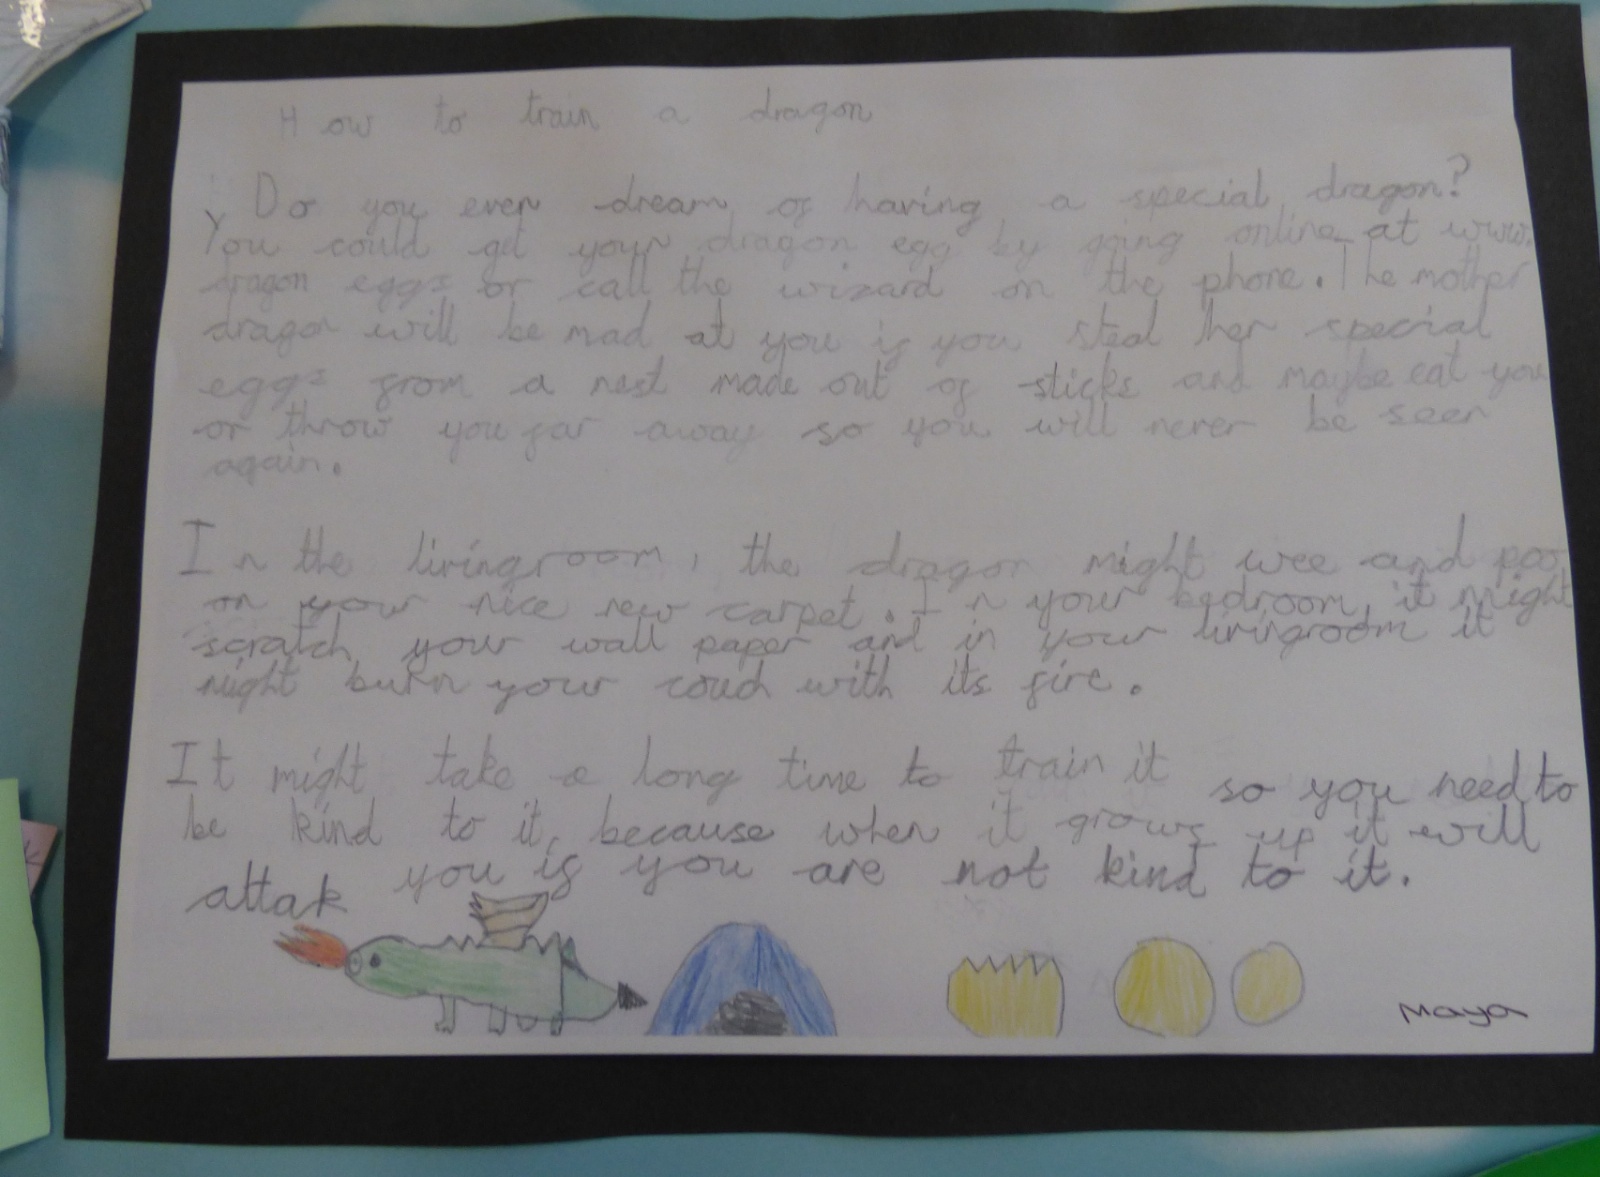 How to train a dragon
Do you ever dream of having a special dragon?
You could get your dragon egg by going online at www.
dragon eggs or call the wizard on the phone. The mother
dragon will be mad at you if you steal her special
eggs from a nest made out of sticks and maybe eat you
or throw you far away so you will never be seen
again.
In the livingroom, the dragon might wee and poo
on your nice new carpet. In your bedroom, it might
scratch your wall paper and in your livingroom it
might burn your couch with its fire.
It might take a long time to train it so you need to
be kind to it, because when it grows up it will
attak you if you are not kind to it.
Maya